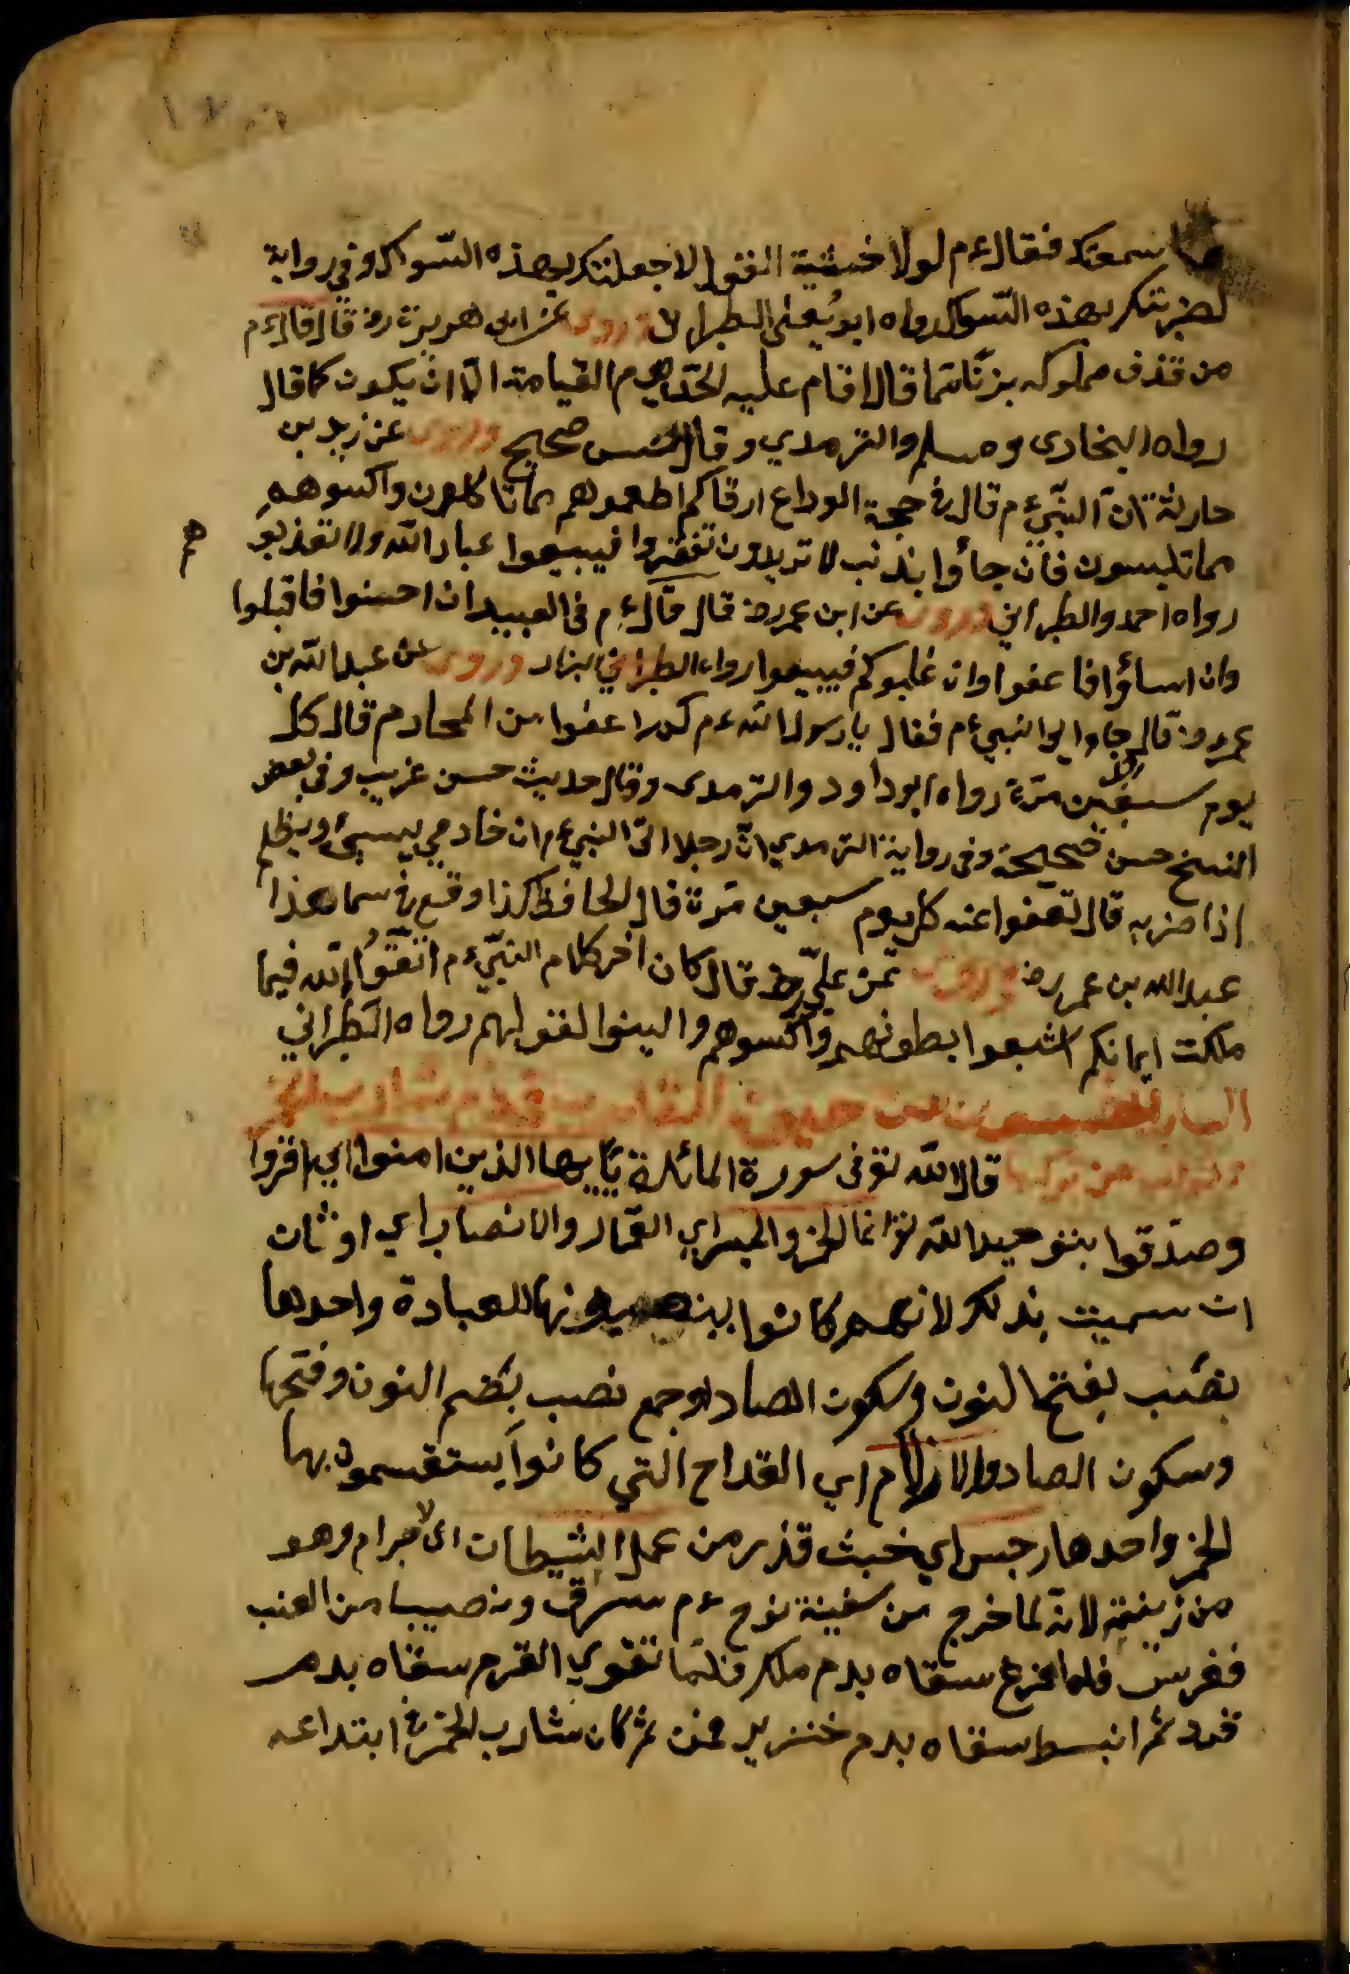 ما سمعتك فقال ءم لولا خشية القود لاجعلتك بهذه السّواك وفي رواية
لضربتك بهذه السّواك رواه ابو يعلى الطبراني وروى عن ابى هريرة رض قال قال ءم
من قذف مملوكه بزنا مما قال اقام عليه الحدّ يوم القيامة الّا ان يكون كما قال
رواه البخارى ومسلم والترمذي وقال حسن صحيح وروى عن زيد بن
حارثة انّ النبّي ءم قال في حجة الوداع ارقاكم اطعموهم مما تاكلون واكسوهم
مما تلبسون فان جاؤا بذنب لا تريدون تغفروا فبيعوا عباد الله ولا تعذبو
هم
رواه احمد والطبراني وروى عن ابن عمر رض قال قال ءم فى العبيد ان احسنوا فاقبلوا
وان اساؤا فاعفوا وان غلبوكم فبيعوا رواه الطبراني بزار وروى عن عبد الله بن
عمر رض قال جاء الى النبيءم فقال يا رسول الله ءم كم اعفوا من الخادم قال كل
يوم سبعين مرّة رواه ابو داود والترمدى وقال حديث حسن غريب وفى بعض
النسخ حسن صحيحة وفى رواية الترمدي انّ رجلا اتى النبيءم ان خادمي يسيئ ويظلم
اذا ضربه قال تعفوا عنه كل يوم سبعين مرّة قال الحافظ كذا وقع في سماعنا
عبد الله بن عمر رض وروى عن عليّ رض قال كان اخر كلام النبّيءم اتّقوا الله فيما
ملكت ايمانكم اشبعوا بطونهم واكسوهم والينوا القول لهم رواه الطبراني
الباب الخمسون من حديث في ذم شارب الخمر
وثواب من تركها قال الله تع فى سورة المائدة يا ايها الذين امنوا اي اقروا
وصدّقوا بتوحيد الله تع انما الخمر والميسر اي القمار والانصاب اي اوثان
ان سميت بذلك لانهم كانوا ينصبونها للعبادة واحدها
نصب بفتح النون وسكون الصاد او جمع نصب بضم النون وفتحها
وسكون الصاد والازلام اي القداح التي كانوا يستقسمون بها
الخمر واحدها رجس اي خبث قذر من عمل الشيطان اى لا حرام وهو
من زينته لانه لما خرج من سفينة نوح ءم سرق ونصيبا من العنب
فغرس فلما افرغ سقاه بدم فلما تقوي القرم سقاه بدم
قرد ثم انبسط سقاه بدم خنزير فمن ثم كان شارب الخمر في ابتدائه